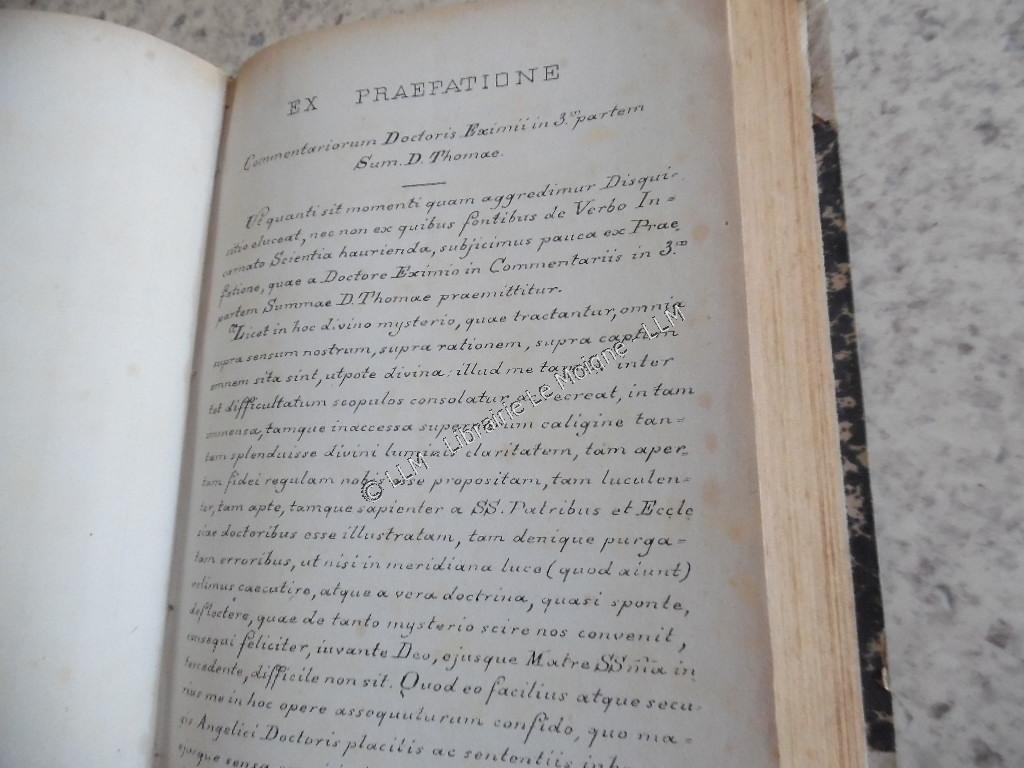 EX PRAEFATIONE
Commentariorum Doctoris Eximii in 3.am partem
Sum. D. Thomae.
Ut quanti sit momenti quam aggredimur Disqui-
sitio eluceat, nec non ex quibus fontibus de Verbo In=
carnato Scientia haurienda, subjicimus pauca ex Prae
fatione, quae a Doctore Eximio in Commentariis in 3.am
partem Summae D. Thomae praemittitur.
"Licet in hoc divino mysterio, quae tractantur, omnia
supra sensum nostrum, supra rationem, supra captum
omnem sita sint, utpote divina: illud me tamen inter
tot difficultatum scopulos consolatur ac recreat, in tam
immensa, tamque inaccessa superum caligine tan=
tam splenduisse divini luminis claritatem, tam aper=
tam fidei regulam nobis esse propositam, tam luculen=
ter, tam apte, tamque sapienter a SS. Patribus et Eccle
siae doctoribus esse illustratam, tam denique purga=
tam erroribus, ut nisi in meridiana luce (quod aiunt)
velimus caecutire, atque a vera doctrina, quasi sponte,
deflectere, quae de tanto mysterio scire nos convenit,
consequi feliciter, iuvante Deo, ejusque Matre SSm̃a in
tercedente, difficile non sit. Quod eo facilius atque secu-
rius me in hoc opere assequuturum confido, quo ma=
gis Angelici Doctoris placitis ac sententiis
ejusque sensa
© LLM - Librairie Le Moigne - LLM